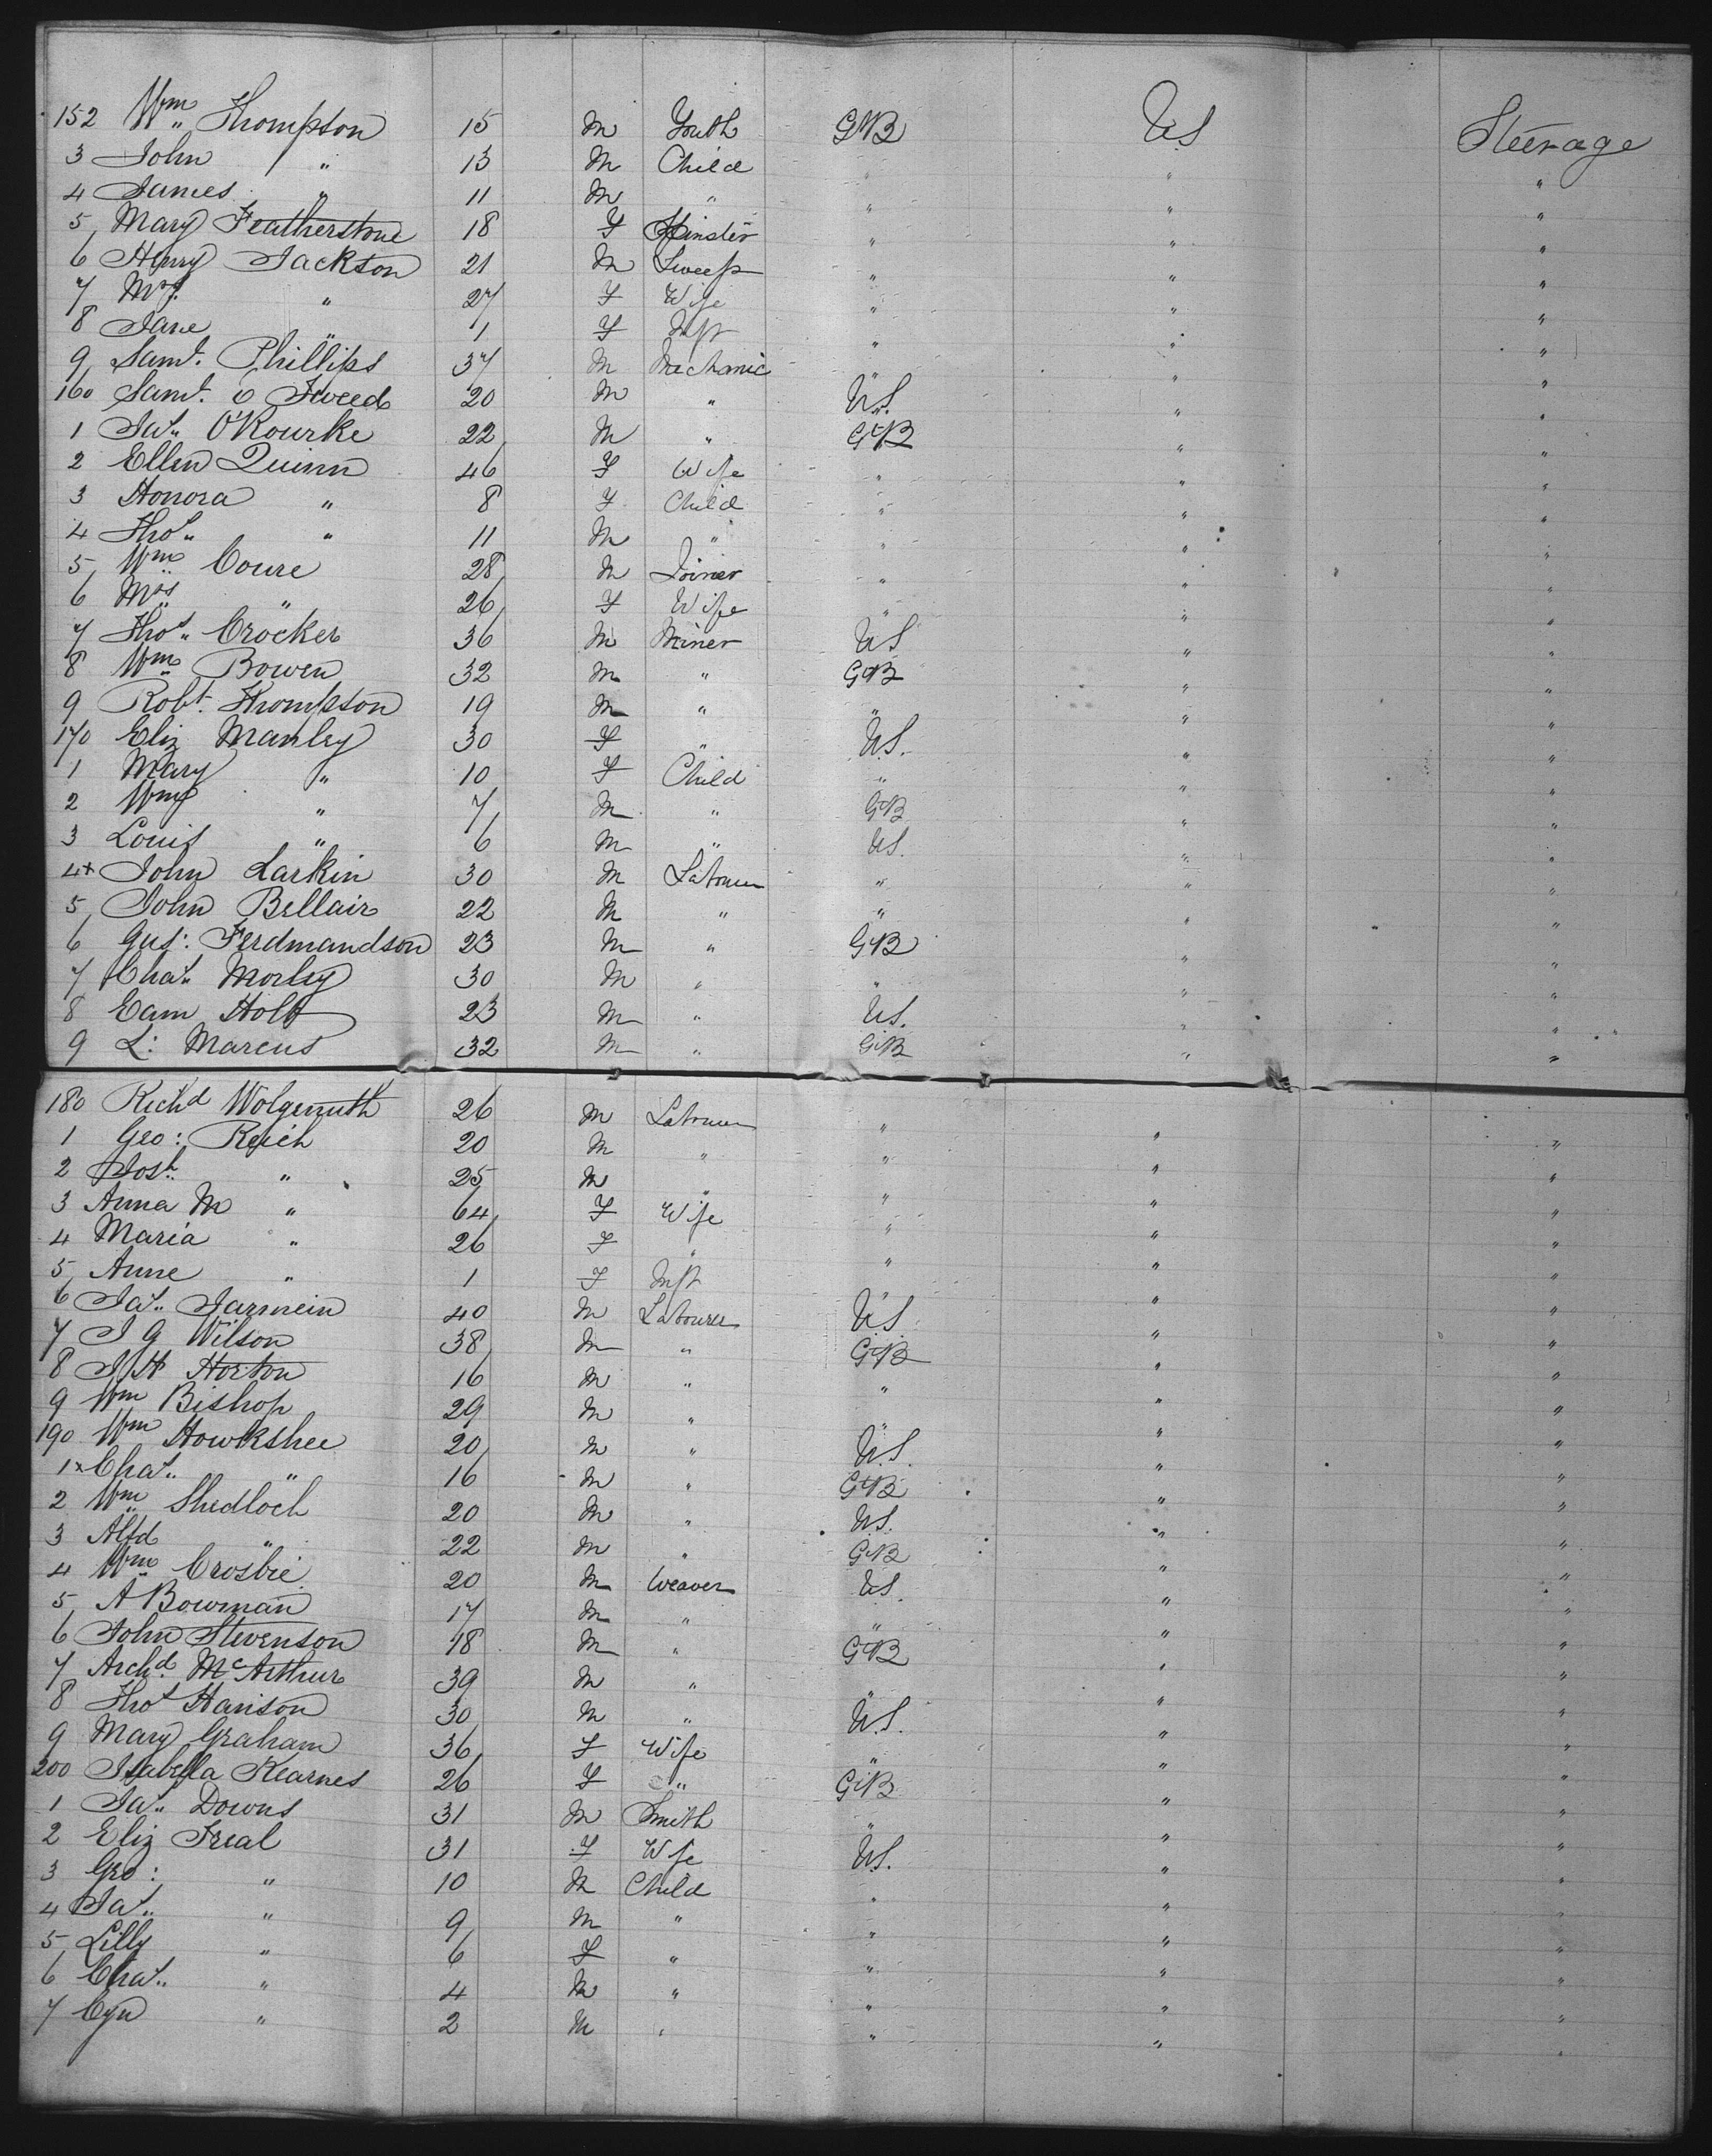 152 Wm Thompson 15 M Youth GB US Steerage
3 John " 13 M Child " " "
4 James " 11 M " " " "
5 Mary Featherstone 18 F Spinster " " "
6 Henry Jackson 21 M Sweep " " "
7 Mrs. " 27 F Wife " " "
8 Jane " 1 F Inft " " "
9 Saml. Phillips 37 M Mechanic " " "
160 Saml. O Tweed 20 M " US. " "
1 Jas. O'Rourke 22 M " GB " "
2 Ellen Quinn 46 F Wife " " "
3 Honora " 8 F Child " " "
4 Thos. " 11 M " " " "
5 Wm Coure 28 M Joiner " " "
6 Mrs " 26 F Wife " " "
7 Thos. Crocker 36 M Miner US " "
8 Wm Bowen 32 M " GB " "
9 Robt. Thompson 19 M " " " "
170 Eliz Manley 30 F " US. " "
1 Mary " 10 F Child " " "
2 Wm " 7 M " GB " "
3 Louis " 6 M " US. " "
4x John Larkin 30 M Labourer " " "
5 John Bellair 22 M " " " "
6 Gus: Ferdmandson 23 M " GB " "
7 Chas. Morley 30 M " " " "
8 Eam Holt 23 M " US. " "
9 L: Marcus 32 M " GB " "
180 Richd Wolgemuth 26 M Labourer " " "
1 Geo: Reich 20 M " " " "
2 Josh. " 25 M " " " "
3 Anna M " 64 F Wife " " "
4 Maria " 26 F " " " "
5 Anne " 1 F Inft " " "
6 Jas. Jarmein 40 M Labourer US " "
7 J G Wilson 38 M " GB " "
8 J H Horton 16 M " " " "
9 Wm Bishop 29 M " " " "
190 Wm Howkshee 20 M " US. " "
1x Chas. " 16 M " GB " "
2 Wm Shedloch 20 M " US. " "
3 Alfd " 22 M " GB " "
4 Wm Crosbie 20 M Weaver US. " "
5 A Bowman 17 M " " " "
6 John Stevenson 18 M " GB " "
7 Archd. McArthur 39 M " " " "
8 Thos Hanson 30 M " US. " "
9 Mary Graham 36 F Wife " " "
200 Isabella Kearnes 26 F " GB " "
1 Jas. Downs 31 M Smith " " "
2 Eliz Freal 31 F Wife US. " "
3 Geo: " 10 M Child " " "
4 Jas. " 9 M " " " "
5 Lilly " 6 F " " " "
6 Chas. " 4 M " " " "
7 " 2 M " " " "